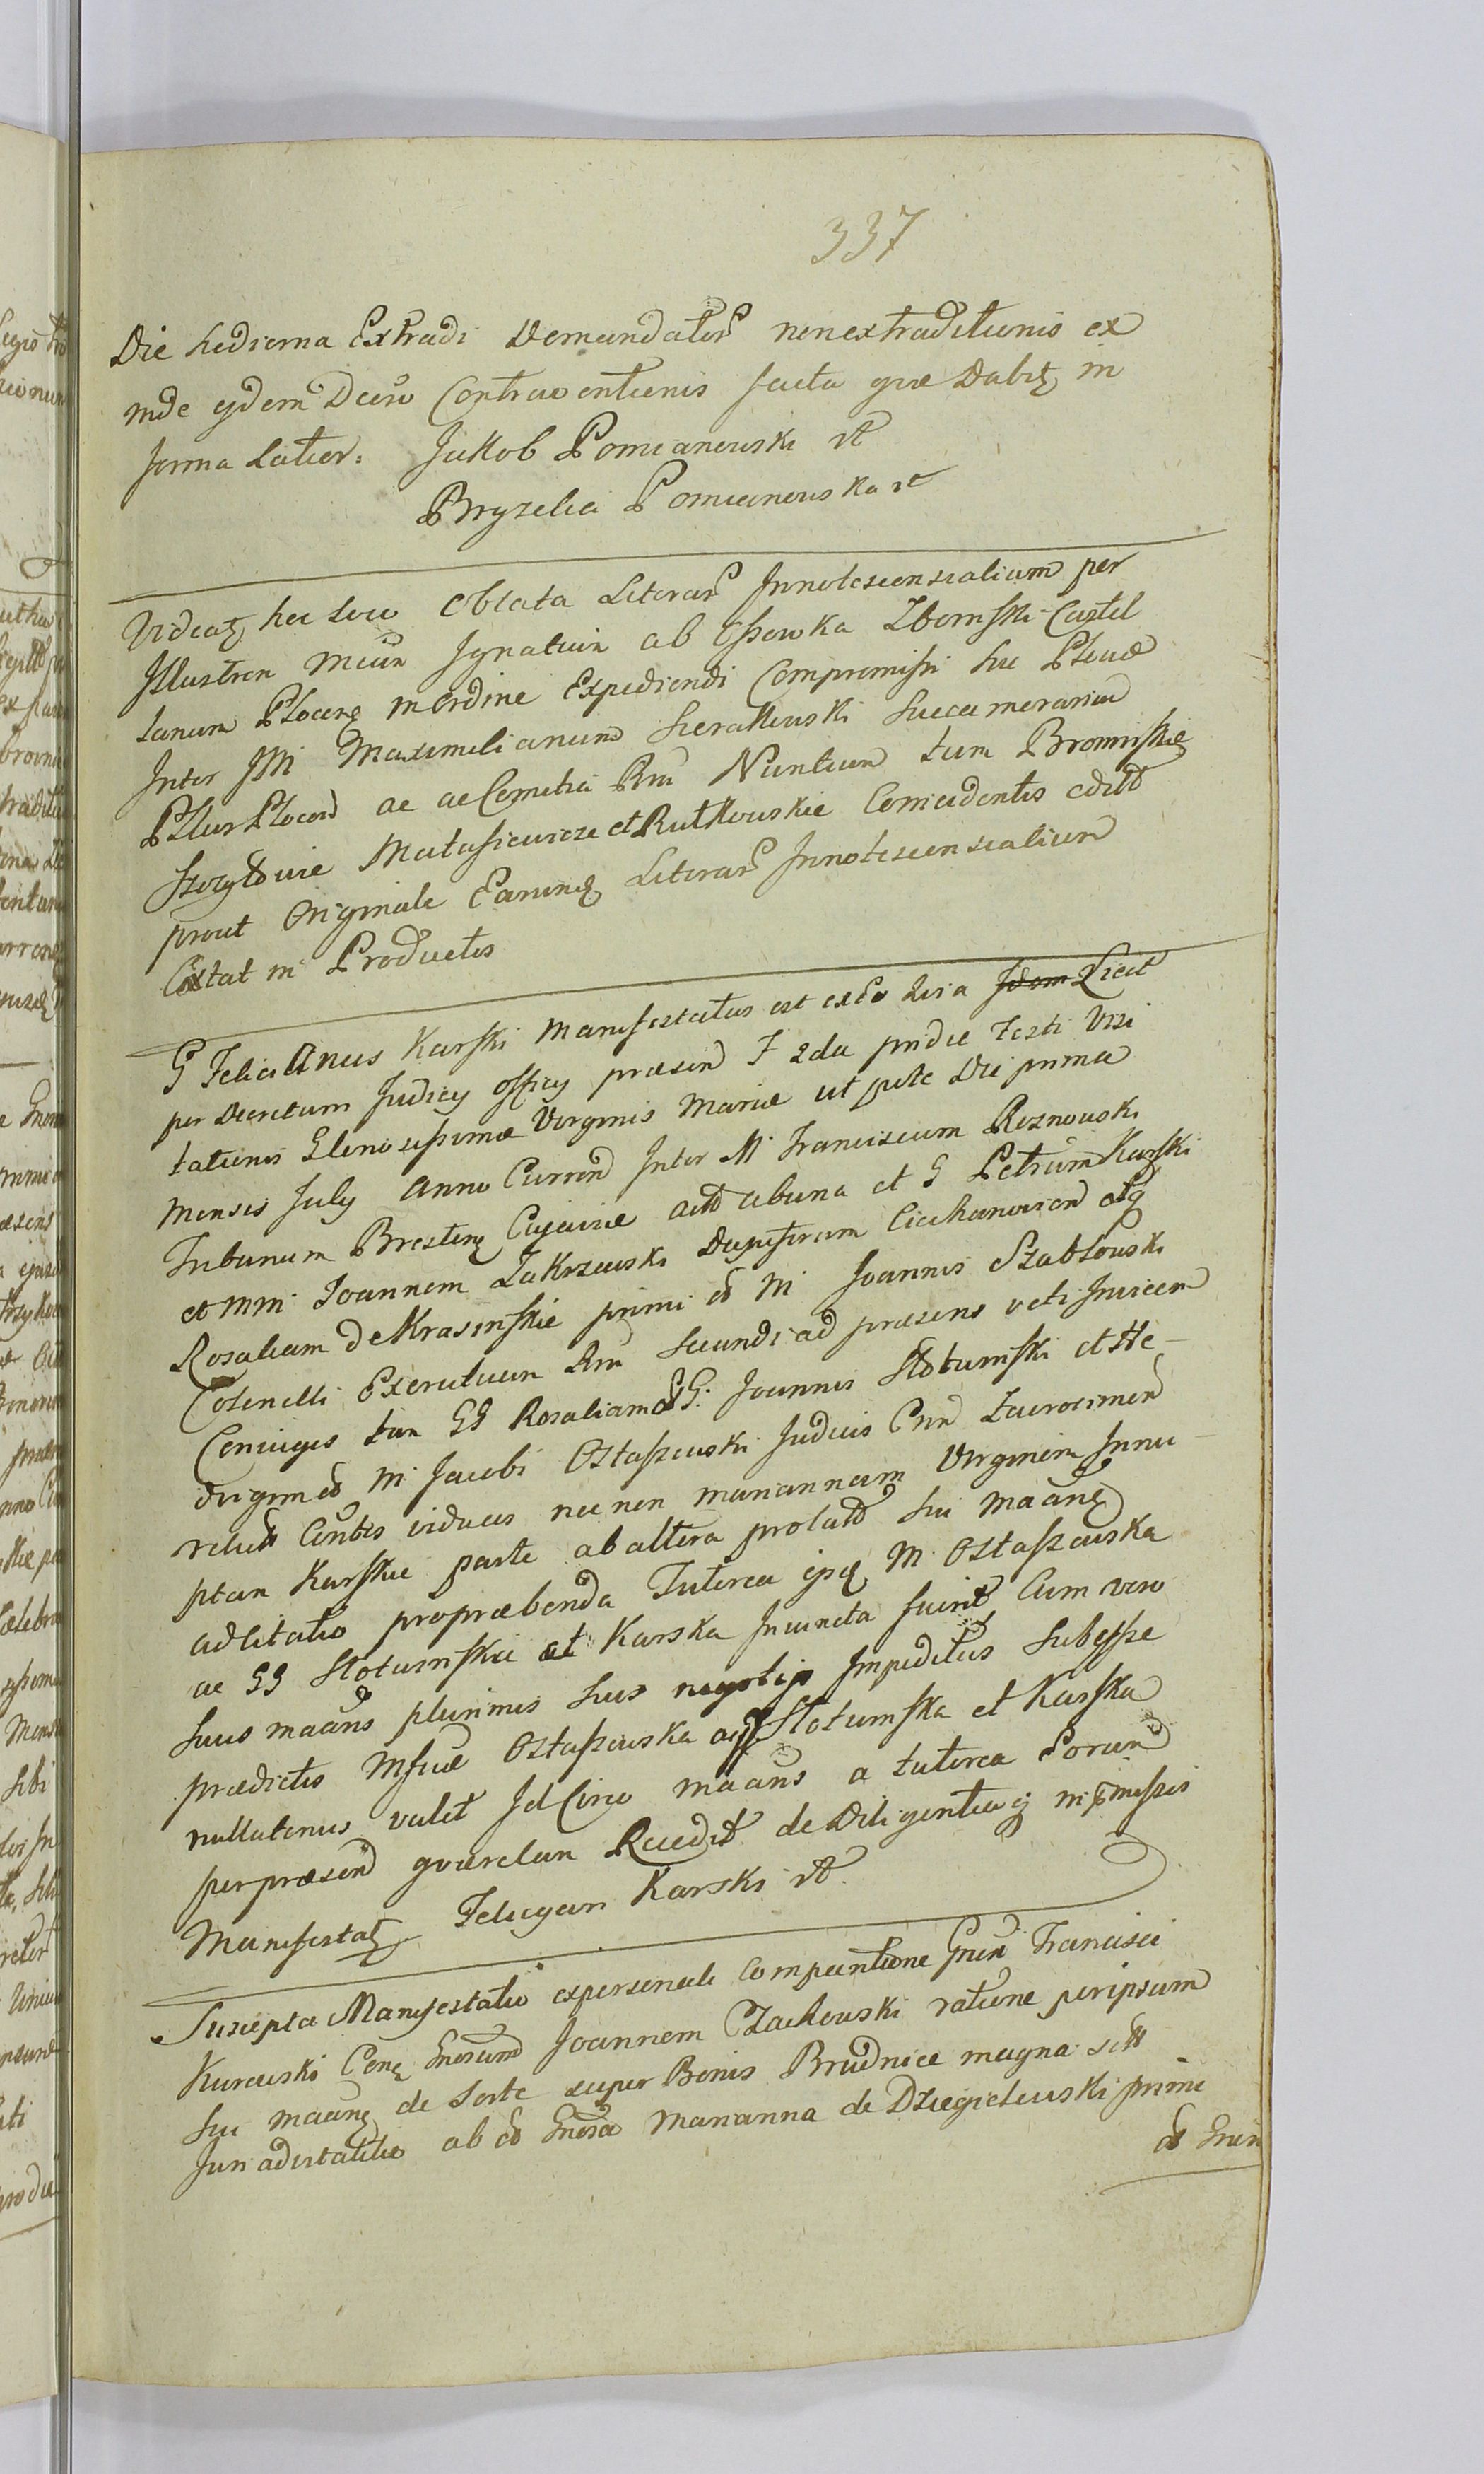 337
Die hodierna Extradi Demandator nonextraditionis ex
inde ejdem Decro Contraventionis facta quæ Dabit in
forma Latior: Jakob Pomianowski rt
Bryzelia Pomianowska rt
Videat hoc loco Oblata Literar Innotescensialium per
Illustrem Mcum Ignatium ab Ossowka Zboinski Castel
lanum Plocens in Ordine Expediendi Compromissi hic Plociæ
Inter IM Maximilianum Sierakowski Succamerarium
Pltus Plocen ac ac Comitia Nuntium tum Bromiskie
Matusiewicze et Rutkowskie Coincidentis edit
prout Originale Earund Literar Innotescensialium
Extat in Productis
G Felicianus Karski Manifestatus est exeo quia Idem Licet
per Decretum Judicy officy præsen F 2da pridie Festi Visi
tationis Gloriosissimæ Virginis Mariæ ut pote Die prima
Mensis July Anno Curren Inter M Franciscum Roznowski
Tribunum Bresten Cujaviæ act abuna et G Petrum Karski
et MM Joannem Zakrzewski Dapiferum Ciechanovien etq
Rosaliam de Krasinskie primi M Joannis Szablowski
Colonelli Exercituum Rni Secundi ad præsens voti Invicem
Coniuges tum GG Rosaliam G. Joannis Slotwinski et He-
dvigim M Jacobi Ostaszewski Judicis Cnn
relict Contes viduas nec non Mariannam Virginem Innu-
ptam Karskie parte ab altera prolat sui
adcitatio propræbenda Tutorea ipsis M. Ostaszewska
ac GG Slotwinska et Karska Iniuncta fuerit Cum vero
suus maans plurimis suis negotijs Impeditus Subesse
prædictis Mficæ Ostaszewska acqs Slotwinska et Karska
nullatenus valet Id Circo maans a tutorea Eorum
per præsen quærelam Recedit de Diligentia ej in præmissis
Manifestat Felicyan Karski rt
Suscepta Manifestatio expersonali Comparitione Gnri Francisci
Kurowski Cons Gnosum Joannem Czachowski ratione peripsum
Sui maans de Sorte super Bonis Brudnice magna
Juri adcitatitio ab Gnosa Marianna de Dziegielewski primi
Gnsi